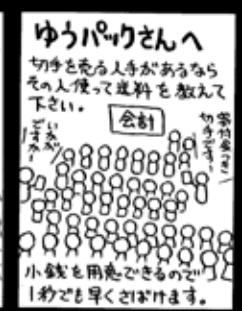 ゆうパックさんへ
切手を売る人手があるなら
その人使って送料を教えて
下さい。
会計
寄付金つき
切手です〜
いかが
ですか〜
小銭を用意できるので
1秒でも早くさばけます。